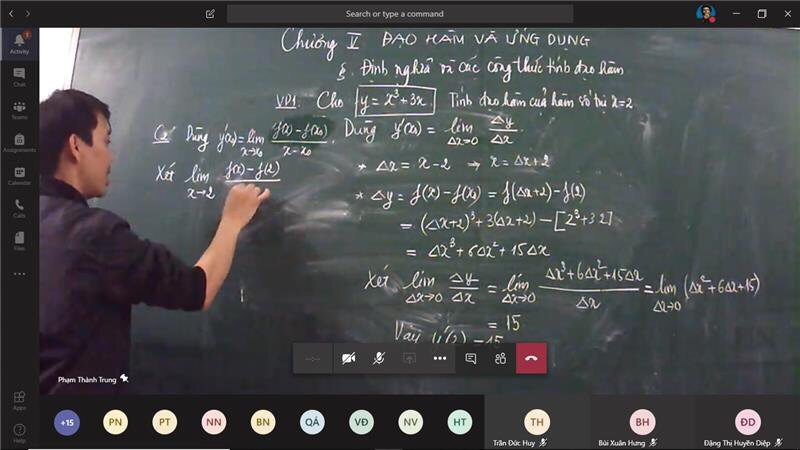 Search or type a command
Activity
Chat
Teams
Assignments
Calendar
Calls
Files
Apps
Help
Chương V ĐẠO HÀM VÀ ỨNG DỤNG
§. Định nghĩa và các công thức tính đạo hàm
VD1. Cho y = x³+3x. Tính đạo hàm của hàm số tại x=2
C2: Dùng y'(x₀)=lim x→x₀ (f(x)−f(x₀))/(x−x₀)
Xét lim x→2 f(x)−f(2)
Dùng y'(x₀) = lim Δx→0 Δy/Δx
* Δx = x−2 → x=Δx+2
* Δy = f(x)−f(x₀) = f(Δx+2)−f(2)
= (Δx+2)³+3(Δx+2) − [2³+3.2]
= Δx³+6Δx²+15Δx
Xét lim Δx→0 Δy/Δx = lim Δx→0 (Δx³+6Δx²+15Δx)/Δx = lim Δx→0 (Δx²+6Δx+15)
= 15
Vậy y'(2) = 15
--:--
Phạm Thành Trung
+15
PN
PT
NN
BN
QÁ
VĐ
NV
HT
TH
BH
ĐD
Trần Đức Huy
Bùi Xuân Hưng
Đặng Thị Huyền Diệp